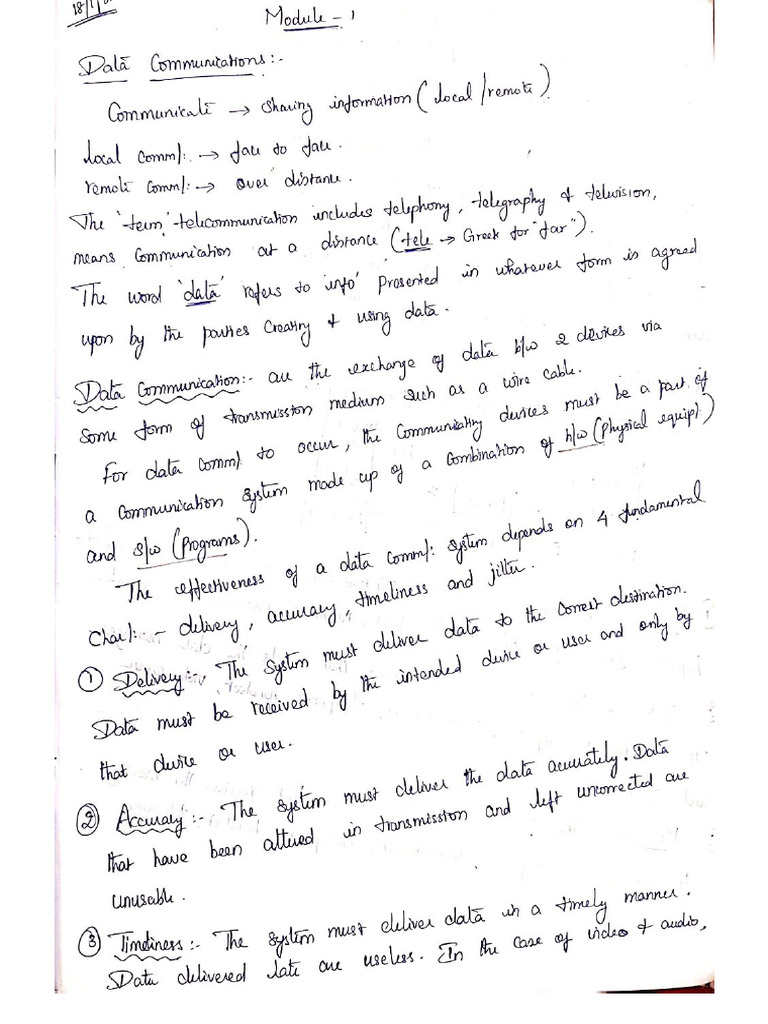 18/1/
Module - 1
Data Communications :-
Communicate → Sharing information (local/remote)
local comm/: → face to face.
remote comm/: → over distance.
The 'term' telecommunication includes telephony, telegraphy & television,
means communication at a distance (tele → Greek for "far").
The word 'data' refers to info' Presented in whatever form is agreed
upon by the parties creating & using data.
Data Communication :- are the exchange of data b/w 2 devices via
some form of transmission medium such as a wire cable.
For data comm/ to occur, the communicating devices must be a part of
a communication system made up of a combination of h/w (Physical equip/.)
and s/w (Programs).
The effectiveness of a data comm/: system depends on 4 fundamental
Char/: - delivery, accuracy, timeliness and jitter.
① Delivery :- The system must deliver data to the correct destination.
Data must be received by the intended device or user and only by
that device or user.
② Accuracy :- The system must deliver the data accurately. Data
that have been altered in transmission and left uncorrected are
unusable.
③ Timeliness :- The system must deliver data in a timely manner.
Data delivered late are useless. In the case of video & audio,